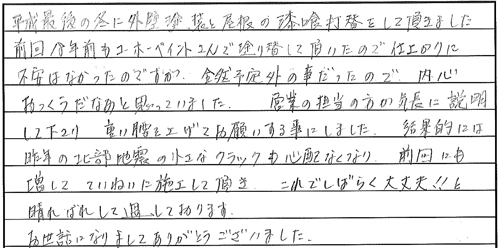 平成最後の冬に外壁塗装と屋根の漆喰打替をして頂きました
前回 8年前もユーホーペイントさんで塗り替して頂いたので仕上りに
不安はなかったのですが、全然予定外の事だったので 内心
おっくうだなあと思っていました。 営業の担当の方が気長に説明
して下さり 重い腰を上げてお願いする事にしました。 結果的には
昨年の北部地震の小さなクラックも心配なくなり 前回にも
増して ていねいに施工して頂き これでしばらく大丈夫!!と
晴ればれして過しております。
お世話になりましてありがとうございました。